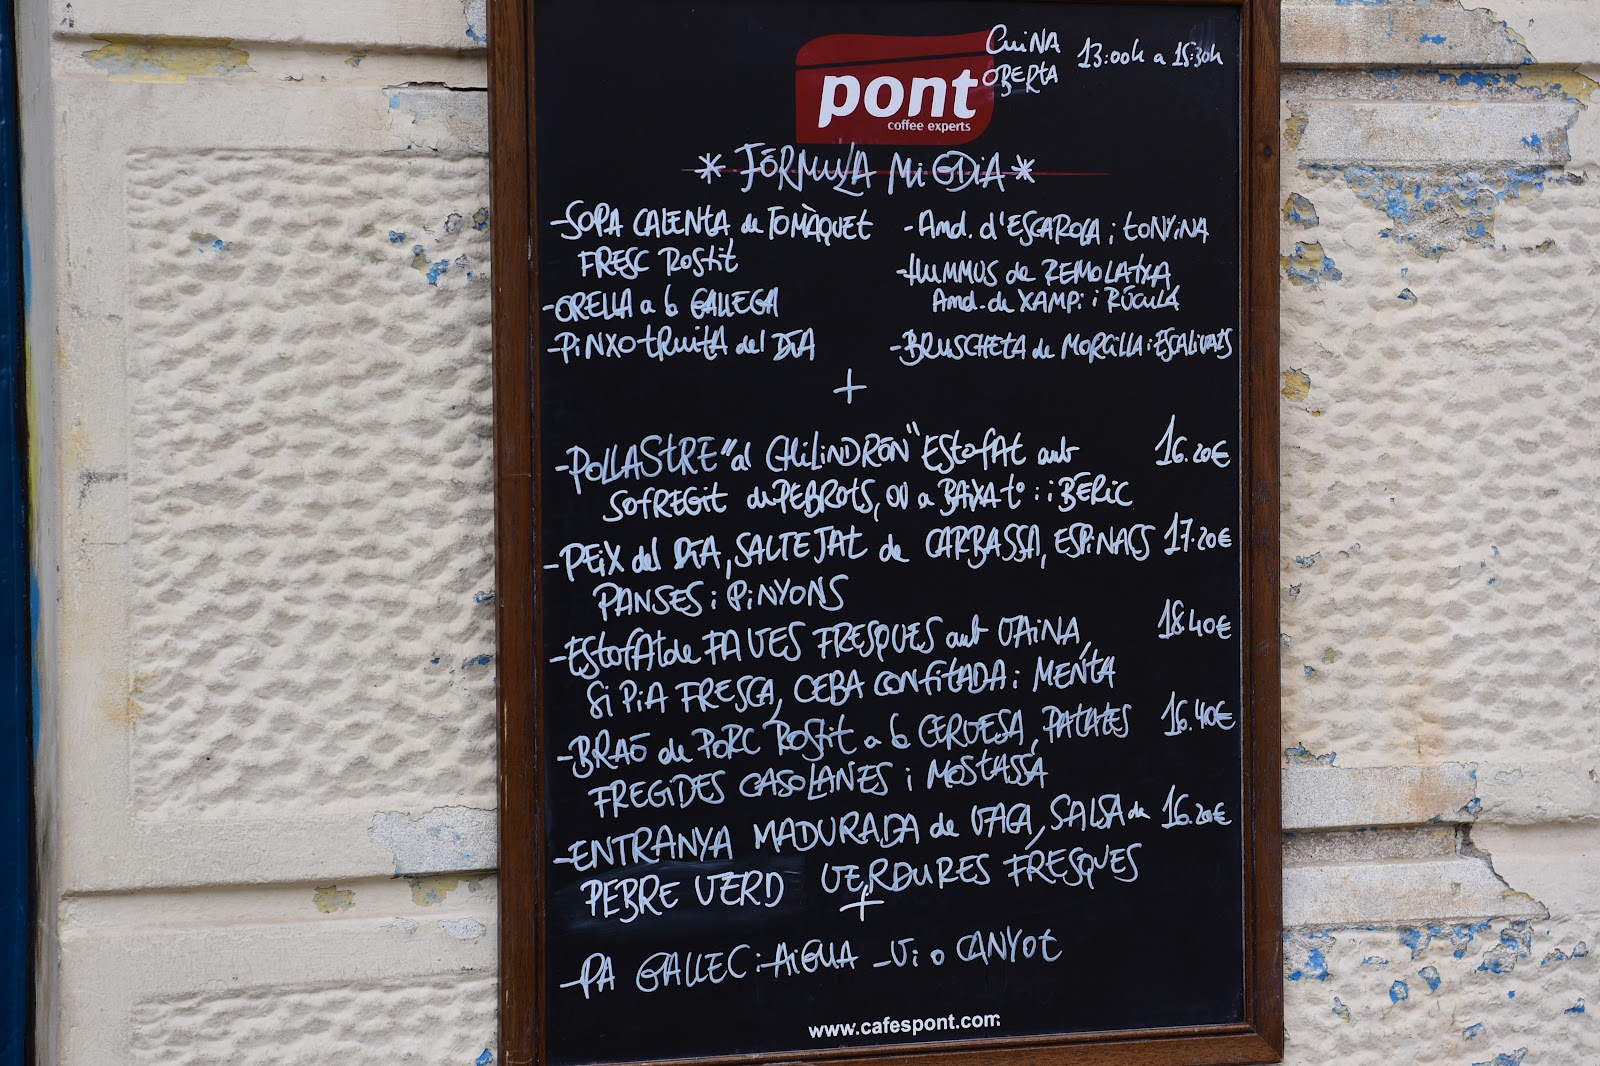 CUINA
OBERTA
13:00h a 15:30h
pont
coffee experts
* FÓRMULA MIGDIA *
-SOPA CALENTA de TOMÀQUET
FRESC ROSTIT
-ORELLA a la GALLEGA
-PINXO TRUITA del DIA
-Amd. d'ESCAROLA i TONYINA
-HUMMUS de REMOLATXA
Amd. de XAMPI i RÚCULA
-BRUSCHETA de MORCILLA i ESCALIVATS
+
-POLLASTRE "al CHILINDRÓN" ESTOFAT amb 16.20€
SOFREGIT de PEBROTS, OU a BAIXA tº i iBÈRIC
-PEIX del DIA, SALTEJAT de CARBASSA, ESPINACS 17.20€
PANSES i PINYONS
-ESTOFAT de FAVES FRESQUES amb VAINA, 18.40€
SIPIA FRESCA, CEBA CONFITADA i MENTA
-BRAÓ de PORC ROSTIT a la CERVESA, PATATES 16.40€
FREGIDES CASOLANES i MOSTASSA
-ENTRANYA MADURADA de VACA, SALSA de 16.20€
PEBRE VERD VERDURES FRESQUES
+
-PA GALLEC i -AIGUA -VI o CANYOT
www.cafespont.com